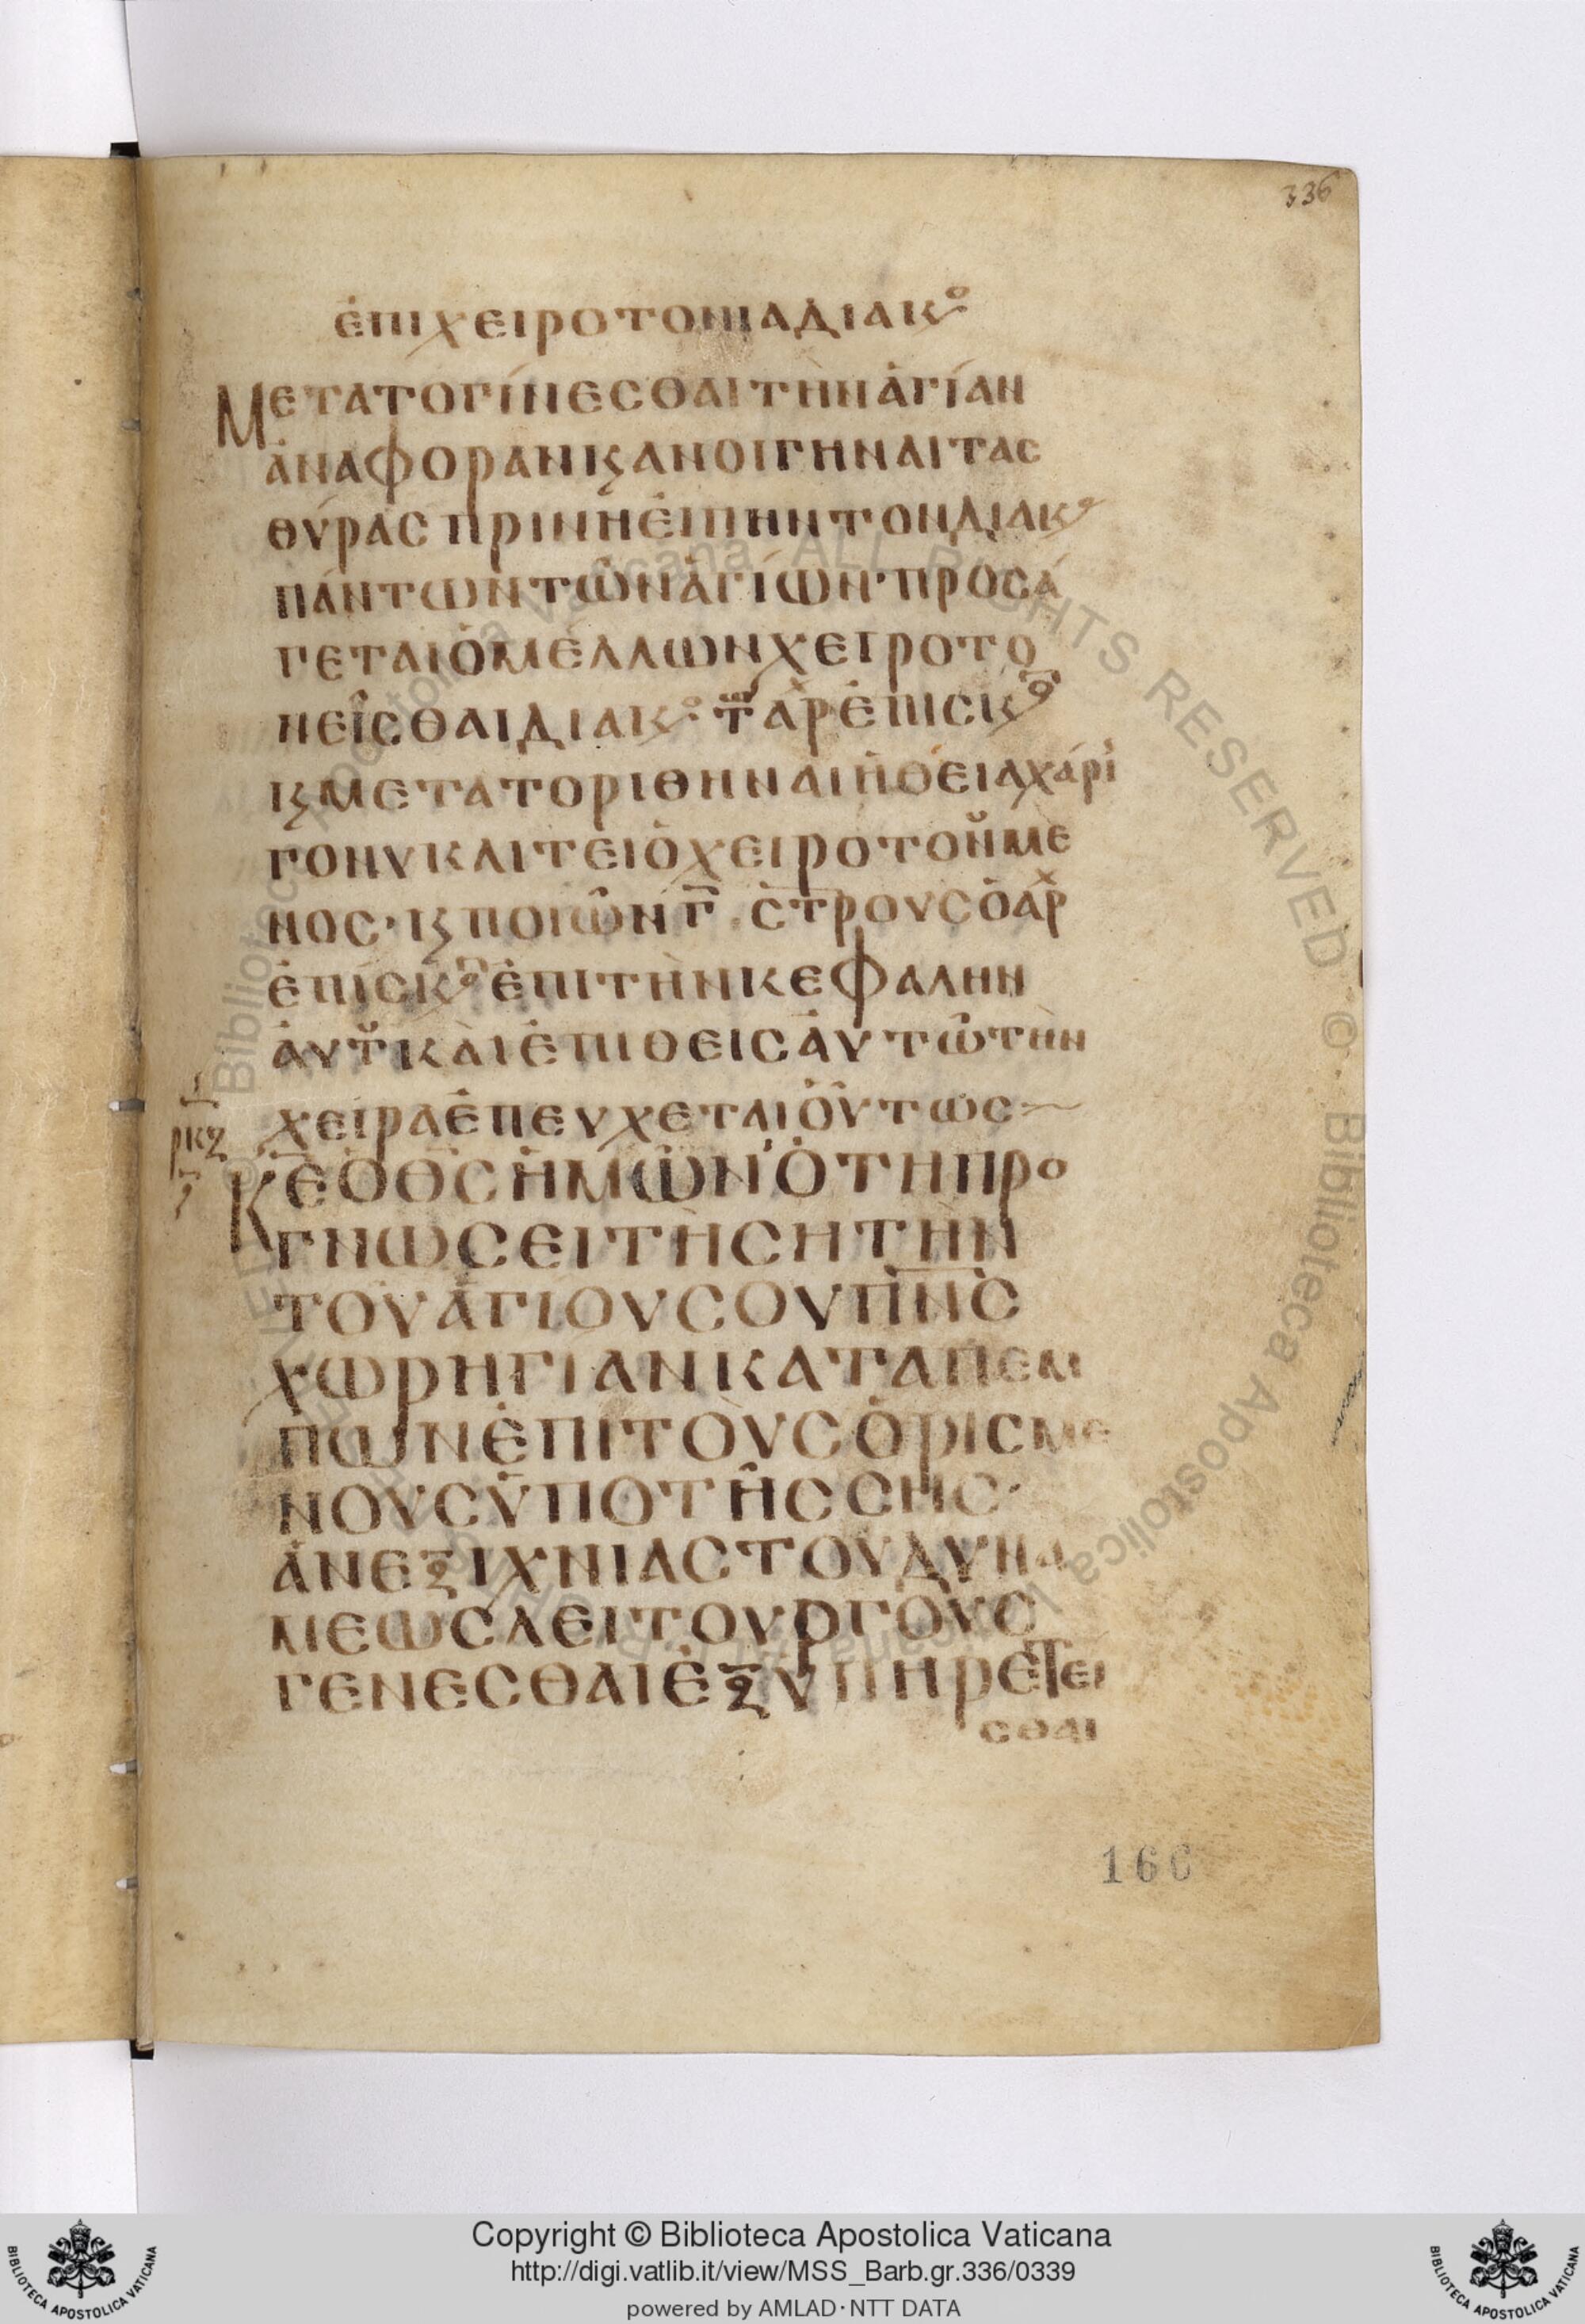 336
ἐπιχειροτονιαδιακο
Μετατογίνεσθαιτὴνἁγίαν
ἀναφορανκϛανοιγηναιτας
θύραςπρινἢἐιπηντονδιακο
πάντωντῶνἁγίων·προσά
γεταιὁμέλλωνχειροτο
νεῖσθαιδιακο τῶ αρχἐπισκοπ
κϛμετατοριθηναιἡθειαχάρι
γονυκλιτειὁχειροτονȣμε
νος·κϛποιῶν γ̅ σ̅τ̅ρους ὁαρχ
ἐπισκοπἐπιτὴνκεφαλην
ἀυτȣκαὶἐπιθειςἀυτῶτὴν
χειραἐπευχεταιὁύτως
ρκζ
Κ̅ε̅ὁθ̅ς̅ἡμῶν'ὁτηπρο
γνωσειτῆσητὴν
τουἁγίουσουπ̅ν̅ς̅
χωρηγίανκαταπεμ
πωνἐπιτοὺςὁρισμε
νουςὑποτῆςσης·
ἀνεξιχνιαστουδυνα
μεωςλειτουργοὺς
γενεσθαιἐξυπηρετει
σθαι
160
Copyright © Biblioteca Apostolica Vaticana
http://digi.vatlib.it/view/MSS_Barb.gr.336/0339
powered by AMLAD·NTT DATA